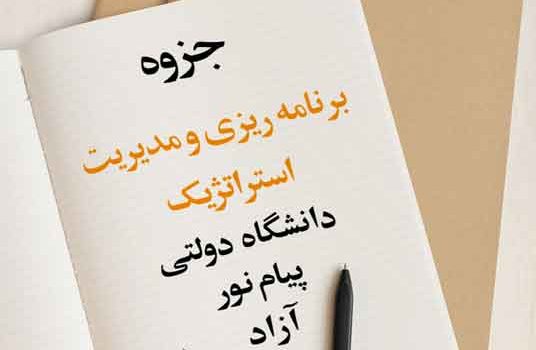 جزوه
برنامه ریزی و مدیریت
استراتژیک
دانشگاه دولتی
پیام نور
آزاد